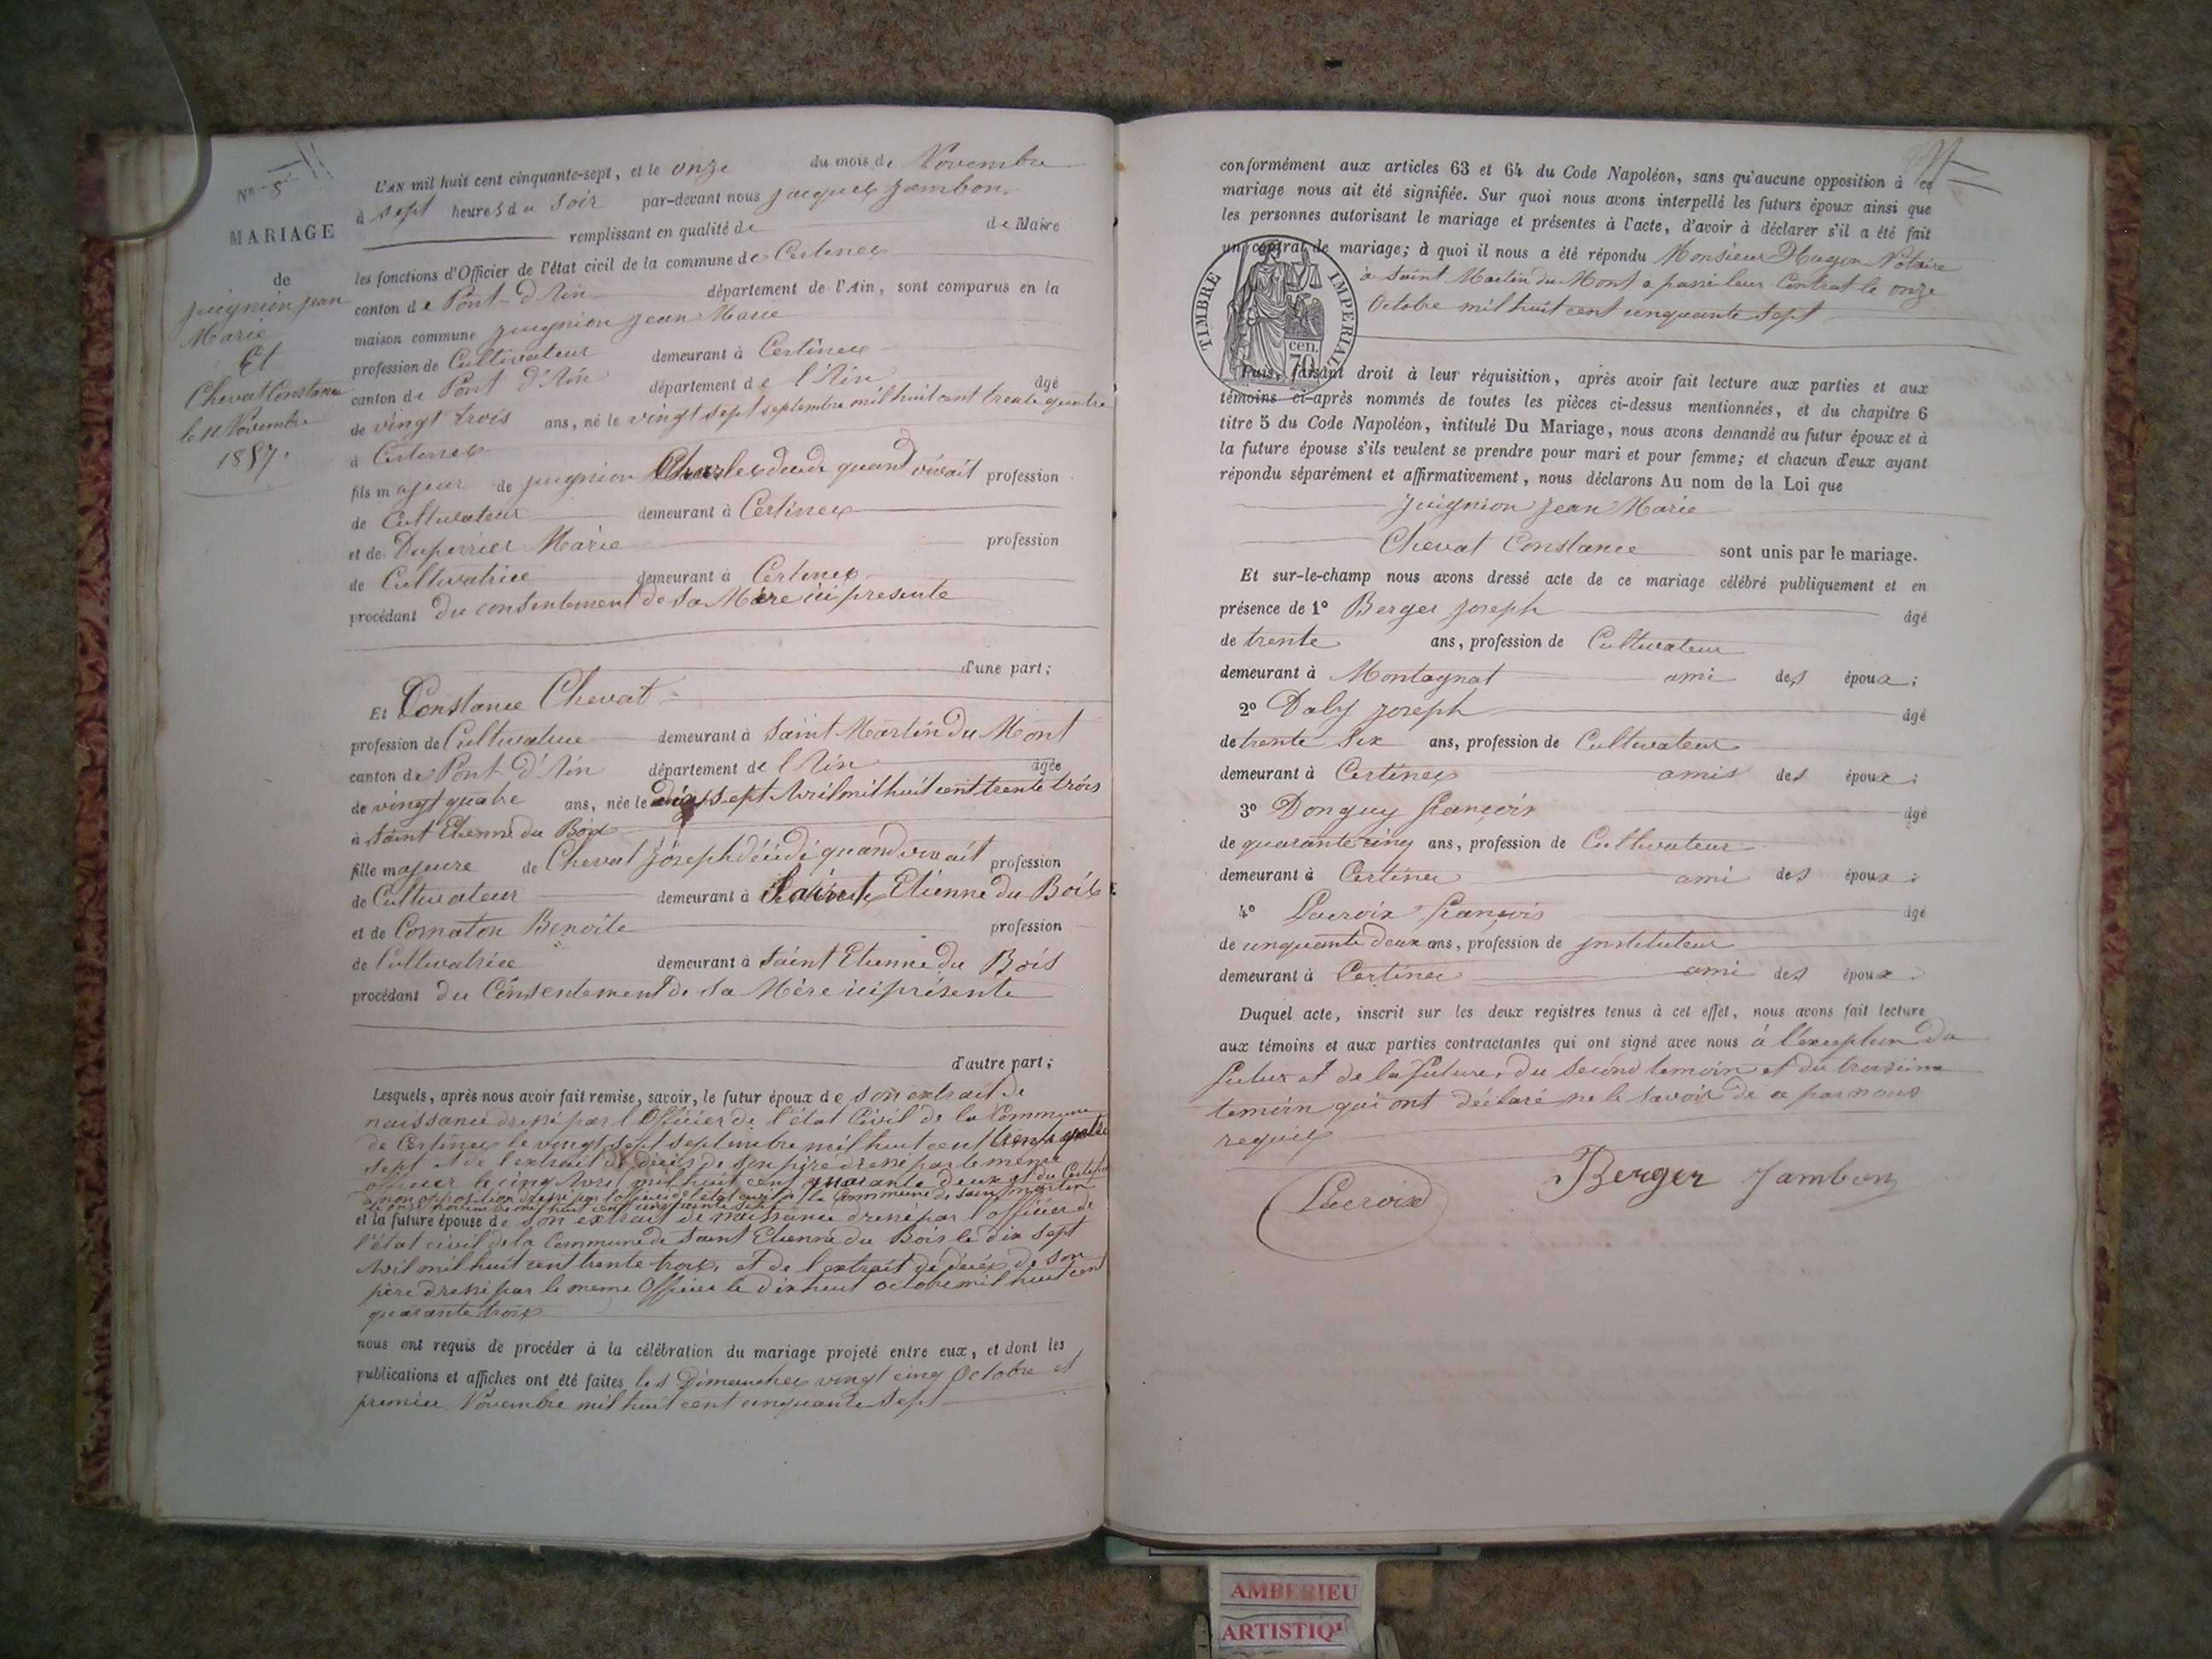 No 5
MARIAGE
de
Juignion Jean
Marie
Et
Chevat Constance
le 11 Novembre
1857.
L'AN mil huit cent cinquante-sept, et le onze du mois de Novembre
à sept heures du soir par-devant nous Jacques Jambon
remplissant en qualité de de Maire
les fonctions d'Officier de l'état civil de la commune de Certines
canton de Pont-d'Ain département de l'Ain, sont comparus en la
maison commune Juignion Jean Marie
profession de Cultivateur demeurant à Certines
canton de Pont d'Ain département de l'Ain âgé
de vingt trois ans, né le vingt sept septembre mil huit cent trente quatre
à Certines
fils majeur de Juignion Charles décédé quand vivait profession
de Cultivateur demeurant à Certines
et de Duperrier Marie profession
de Cultivatrice demeurant à Certines
procédant du consentement de sa Mère ici présente
d'une part;
Et Constance Chevat
profession de Cultivatrice demeurant à Saint Martin du Mont
canton de Pont d'Ain département de l'Ain âgée
de vingt quatre ans, née le dix sept Avril mil huit cent trente trois
à Saint Etienne du Bois
fille majeure de Chevat Joseph décédé quand vivait profession
de Cultivateur demeurant à Saint Etienne du Bois
et de Cornaton Benoite profession
de Cultivatrice demeurant à Saint Etienne du Bois
procédant du Consentement de sa Mère ici présente
d'autre part;
Lesquels, après nous avoir fait remise, savoir, le futur époux de son extrait de
naissance dressé par l'Officier de l'état Civil de la Commune
de Certines le vingt sept septembre mil huit cent trente quatre
sept et de l'extrait de décès de son père dressé par le même
officier le cinq Avril mil huit cent quarante deux et du Certificat
de non opposition dressé par l'officier de l'état civil de la Commune de Saint Martin
le onze novembre mil huit cent cinquante sept
et la future épouse de son extrait de naissance dressé par l'officier de
l'état civil de la Commune de Saint Etienne du Bois le dix sept
Avril mil huit cent trente trois, et de l'extrait de décès de son
père dressé par le meme Officier le dix huit octobre mil huit cent
quarante trois
nous ont requis de procéder à la célébration du mariage projeté entre eux, et dont les
publications et affiches ont été faites les Dimanches vingt cinq Octobre et
premier Novembre mil huit cent cinquante sept
conformément aux articles 63 et 64 du Code Napoléon, sans qu'aucune opposition à ce
mariage nous ait été signifiée. Sur quoi nous avons interpellé les futurs époux ainsi que
les personnes autorisant le mariage et présentes à l'acte, d'avoir à déclarer s'il a été fait
un contrat de mariage; à quoi il nous a été répondu Monsieur Hugon Notaire
à Saint Martin du Mont a passé leur Contrat le onze
Octobre mil huit cent cinquante sept
TIMBRE IMPERIAL
cen.
70
Puis, faisant droit à leur réquisition, après avoir fait lecture aux parties et aux
témoins ci-après nommés de toutes les pièces ci-dessus mentionnées, et du chapitre 6
titre 5 du Code Napoléon, intitulé Du Mariage, nous avons demandé au futur époux et à
la future épouse s'ils veulent se prendre pour mari et pour femme; et chacun d'eux ayant
répondu séparément et affirmativement, nous déclarons Au nom de la Loi que
Juignion Jean Marie
Chevat Constance sont unis par le mariage.
Et sur-le-champ nous avons dressé acte de ce mariage célébré publiquement et en
présence de 1º Berger Joseph âgé
de trente ans, profession de Cultivateur
demeurant à Montagnat ami des époux;
2º Daly Joseph âgé
de trente six ans, profession de Cultivateur
demeurant à Certines amis des époux;
3º Donguy François âgé
de quarante cinq ans, profession de Cultivateur
demeurant à Certines ami des époux;
4º Lacroix François âgé
de cinquante deux ans, profession de Instituteur
demeurant à Certines ami des époux.
Duquel acte, inscrit sur les deux registres tenus à cet effet, nous avons fait lecture
aux témoins et aux parties contractantes qui ont signé avec nous à l'exception du
futur et de la future, du second temoin et du troisième
temoin qui ont déclaré ne le savoir de ce par nous
requis
Lacroix Berger Jambon
AMBERIEU
ARTISTIQ